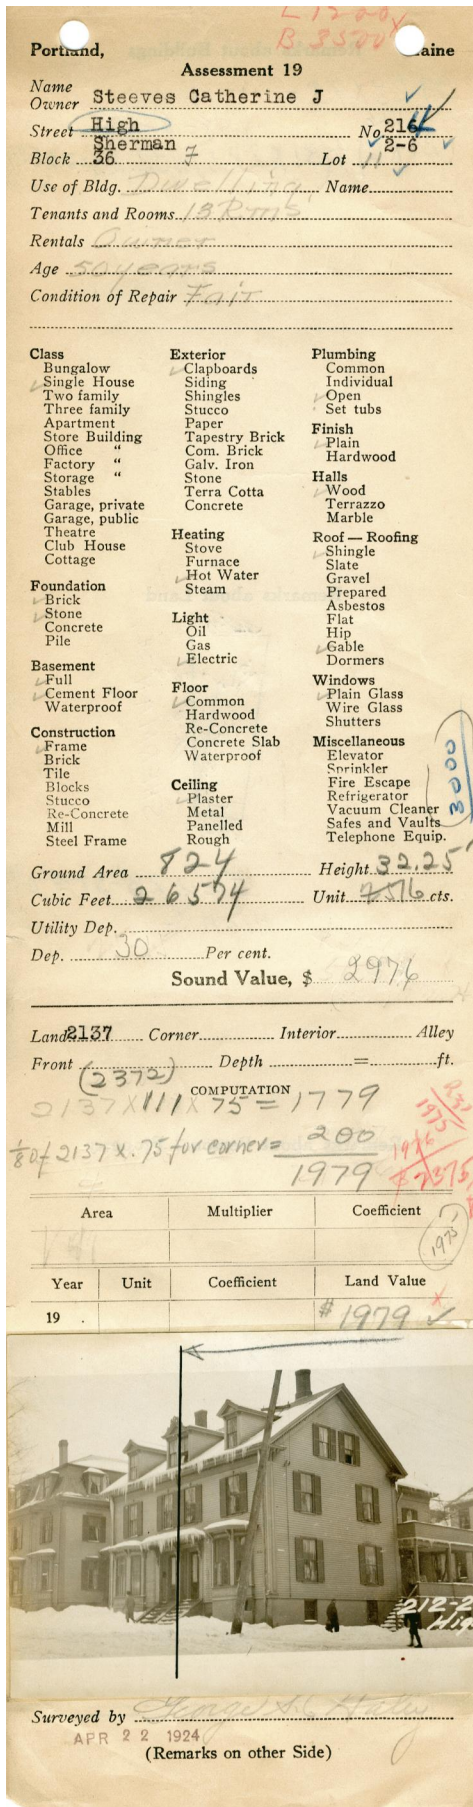 L 1200
B 3500
Portland, Maine
Assessment 19
Name
Owner Steeves Catherine J
Street High No. 216
Sherman 2-6
Block 36 F Lot 11
Use of Bldg. Dwelling Name
Tenants and Rooms 13 Rms
Rentals Owner
Age 50 years
Condition of Repair Fair
Class
Bungalow
Single House
Two family
Three family
Apartment
Store Building
Office “
Factory “
Storage “
Stables
Garage, private
Garage, public
Theatre
Club House
Cottage
Foundation
Brick
Stone
Concrete
Pile
Basement
Full
Cement Floor
Waterproof
Construction
Frame
Brick
Tile
Blocks
Stucco
Re-Concrete
Mill
Steel Frame
Exterior
Clapboards
Siding
Shingles
Stucco
Paper
Tapestry Brick
Com. Brick
Galv. Iron
Stone
Terra Cotta
Concrete
Heating
Stove
Furnace
Hot Water
Steam
Light
Oil
Gas
Electric
Floor
Common
Hardwood
Re-Concrete
Concrete Slab
Waterproof
Ceiling
Plaster
Metal
Panelled
Rough
Plumbing
Common
Individual
Open
Set tubs
Finish
Plain
Hardwood
Halls
Wood
Terrazzo
Marble
Roof — Roofing
Shingle
Slate
Gravel
Prepared
Asbestos
Flat
Hip
Gable
Dormers
Windows
Plain Glass
Wire Glass
Shutters
Miscellaneous
Elevator
Sprinkler
Fire Escape
Refrigerator
Vacuum Cleaner
Safes and Vaults
Telephone Equip.
3000
Ground Area 824 Height 32.25'
Cubic Feet 26574 Unit 16 cts.
Utility Dep.
Dep. 30 Per cent.
Sound Value, $ 2976
Land 2137 Corner Interior Alley
Front Depth = ft.
(2372)
COMPUTATION
2137 X 111 X 75 = 1779
1/8 of 2137 X .75 for corner = 200
1979
1975
1976
$2375
Area Multiplier Coefficient
1975
Year Unit Coefficient Land Value
19 $1979
212-2
Hig
Surveyed by
APR 22 1924
(Remarks on other Side)